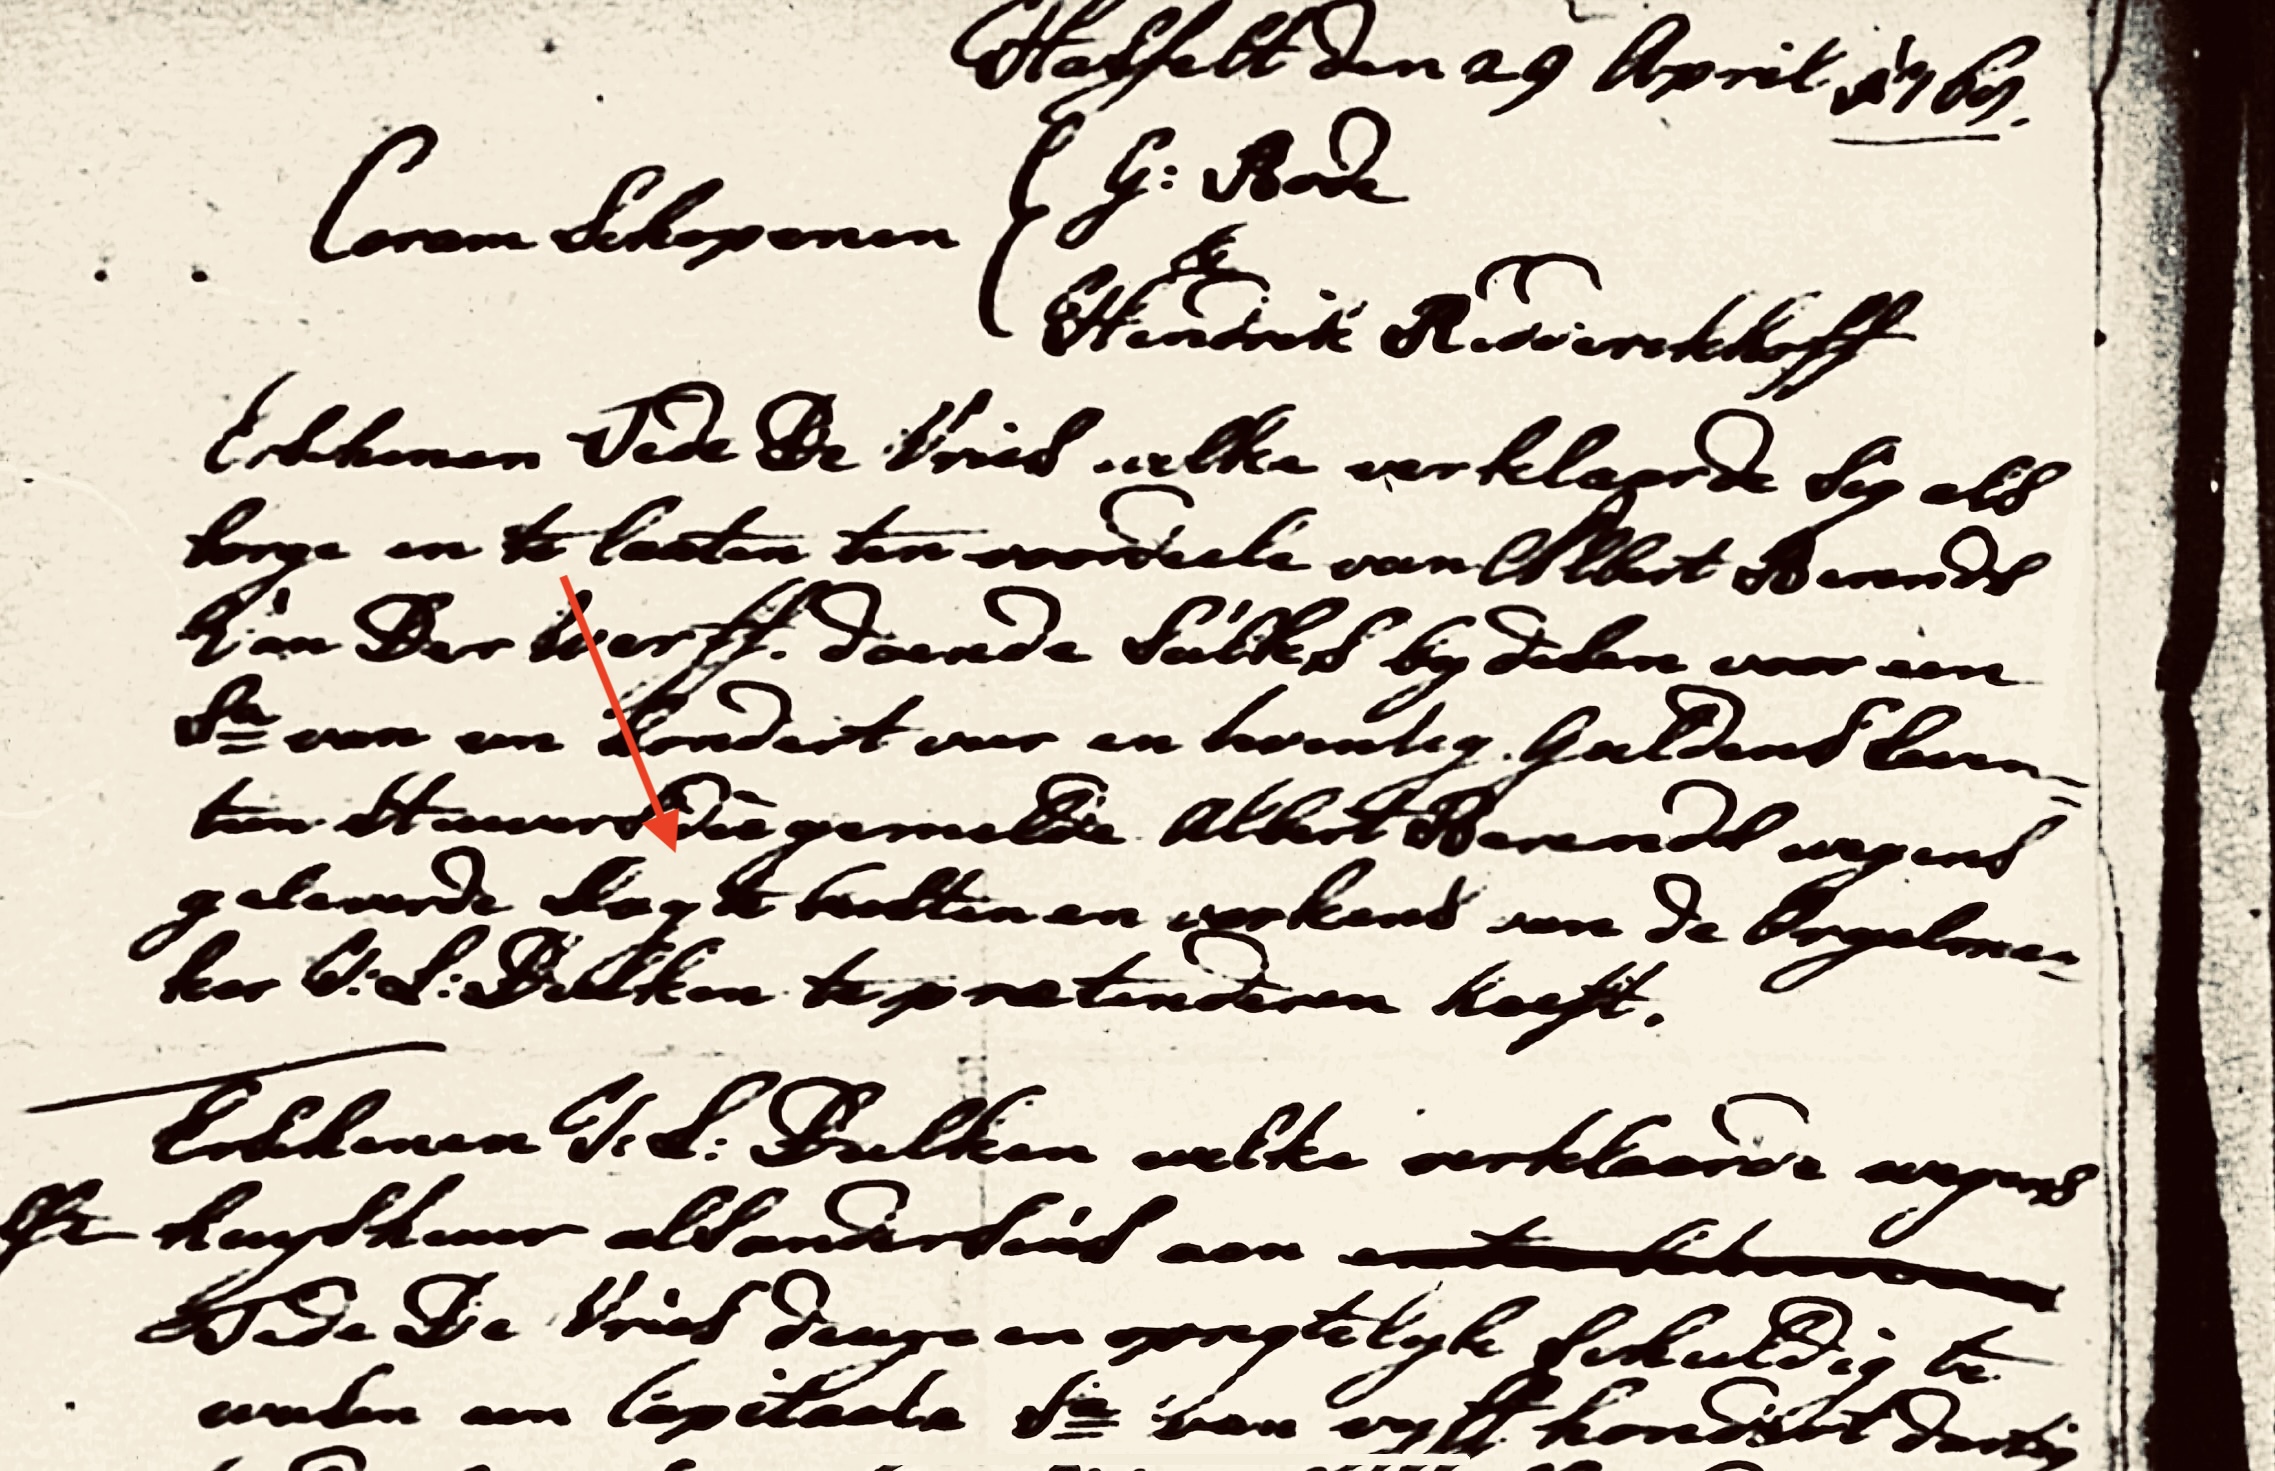 Hasselt den 29 April 1769.
Coram Schepenen { G: Rode
&
Hendrik Ridderinckhoff
Erschenen Jede De Vries welke verklaarde sig als
borge in te laaten ten voordeele van Albert Berends
van Der Werff. doende sulks by desen voor een
Sa van een hondert vier en twintig guldens seven=
tien stuivers die gemelde Albert Berends wegens
geleverde slagte beesten en verkens van de Orgelma=
ker J: S: Bulken te pretenderen heeft.
Erschenen J: S: Bulken welke verklaarde wegens
huyshuur als andersins aan
Jede De Vries deugd en opregtelyk schuldig te
wesen een Capitaale Sa van vyff hondert dartig